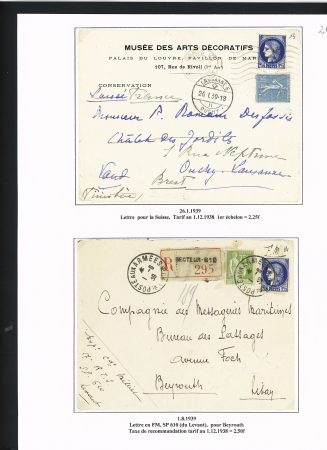 MUSÉE DES ARTS DÉCORATIFS
PALAIS DU LOUVRE, PAVILLON DE MAR
107, Rue de Rivoli (1er Arr.)
CONSERVATION
Suisse France
LAUSANNE
26.1.39-18
Monsieur P. Romain Desfossés
Châlet des Jordils
Rue Neptune
Vaud Ouchy-Lausanne
Brest
Finistère
26.1.1939
Lettre pour la Suisse, Tarif au 1.12.1938 1er échelon = 2,25f
POSTE AUX ARMEES
R
SECTEUR-610
295
Compagnie des Messageries Maritimes
Bureau des Passages
Avenue Foch
Beyrouth Liban
SP 610
1.8.1939
Lettre en FM, SP 610 (du Levant), pour Beyrouth
Taxe de recommandation tarif au 1.12.1938 = 2,50f